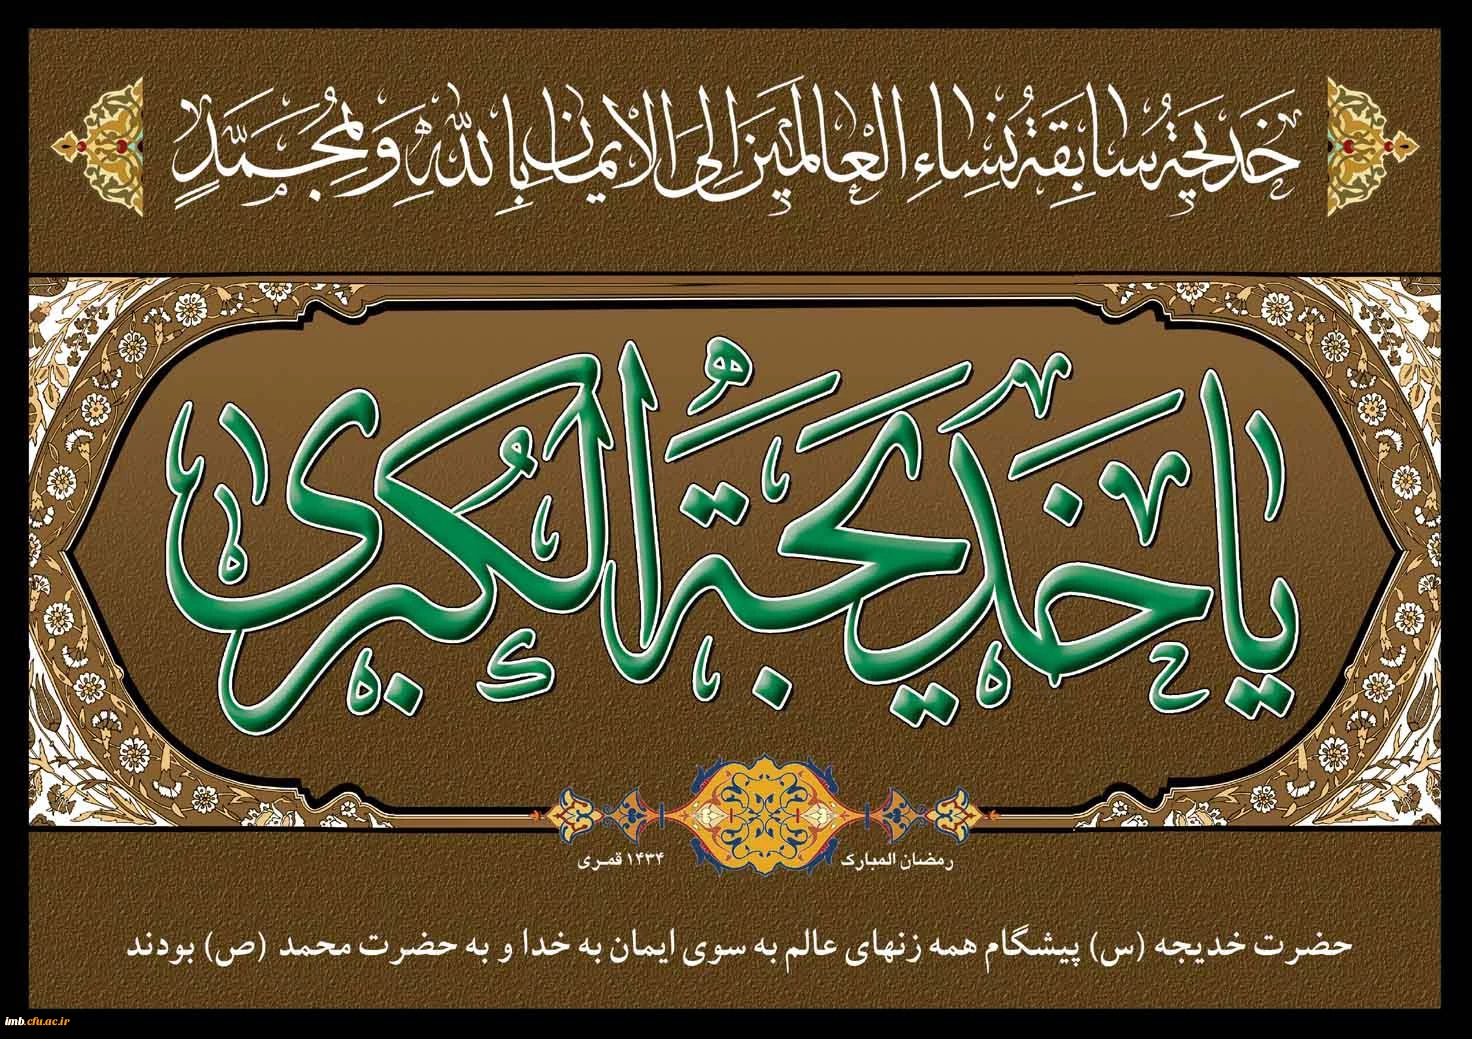 خَديجَةُ سابِقَةُ نِساءِ العالَمينَ إِلَى الايمانِ بِاللّهِ وَ بِمُحَمَّدٍ
يا خديجةُ الكُبرى
رمضان المبارک ۱۴۳۴ قمـری
حضرت خدیجه (س) پیشگام همه زنهای عالم به سوی ایمان به خدا و به حضرت محمد (ص) بودند
imb.cfu.ac.ir